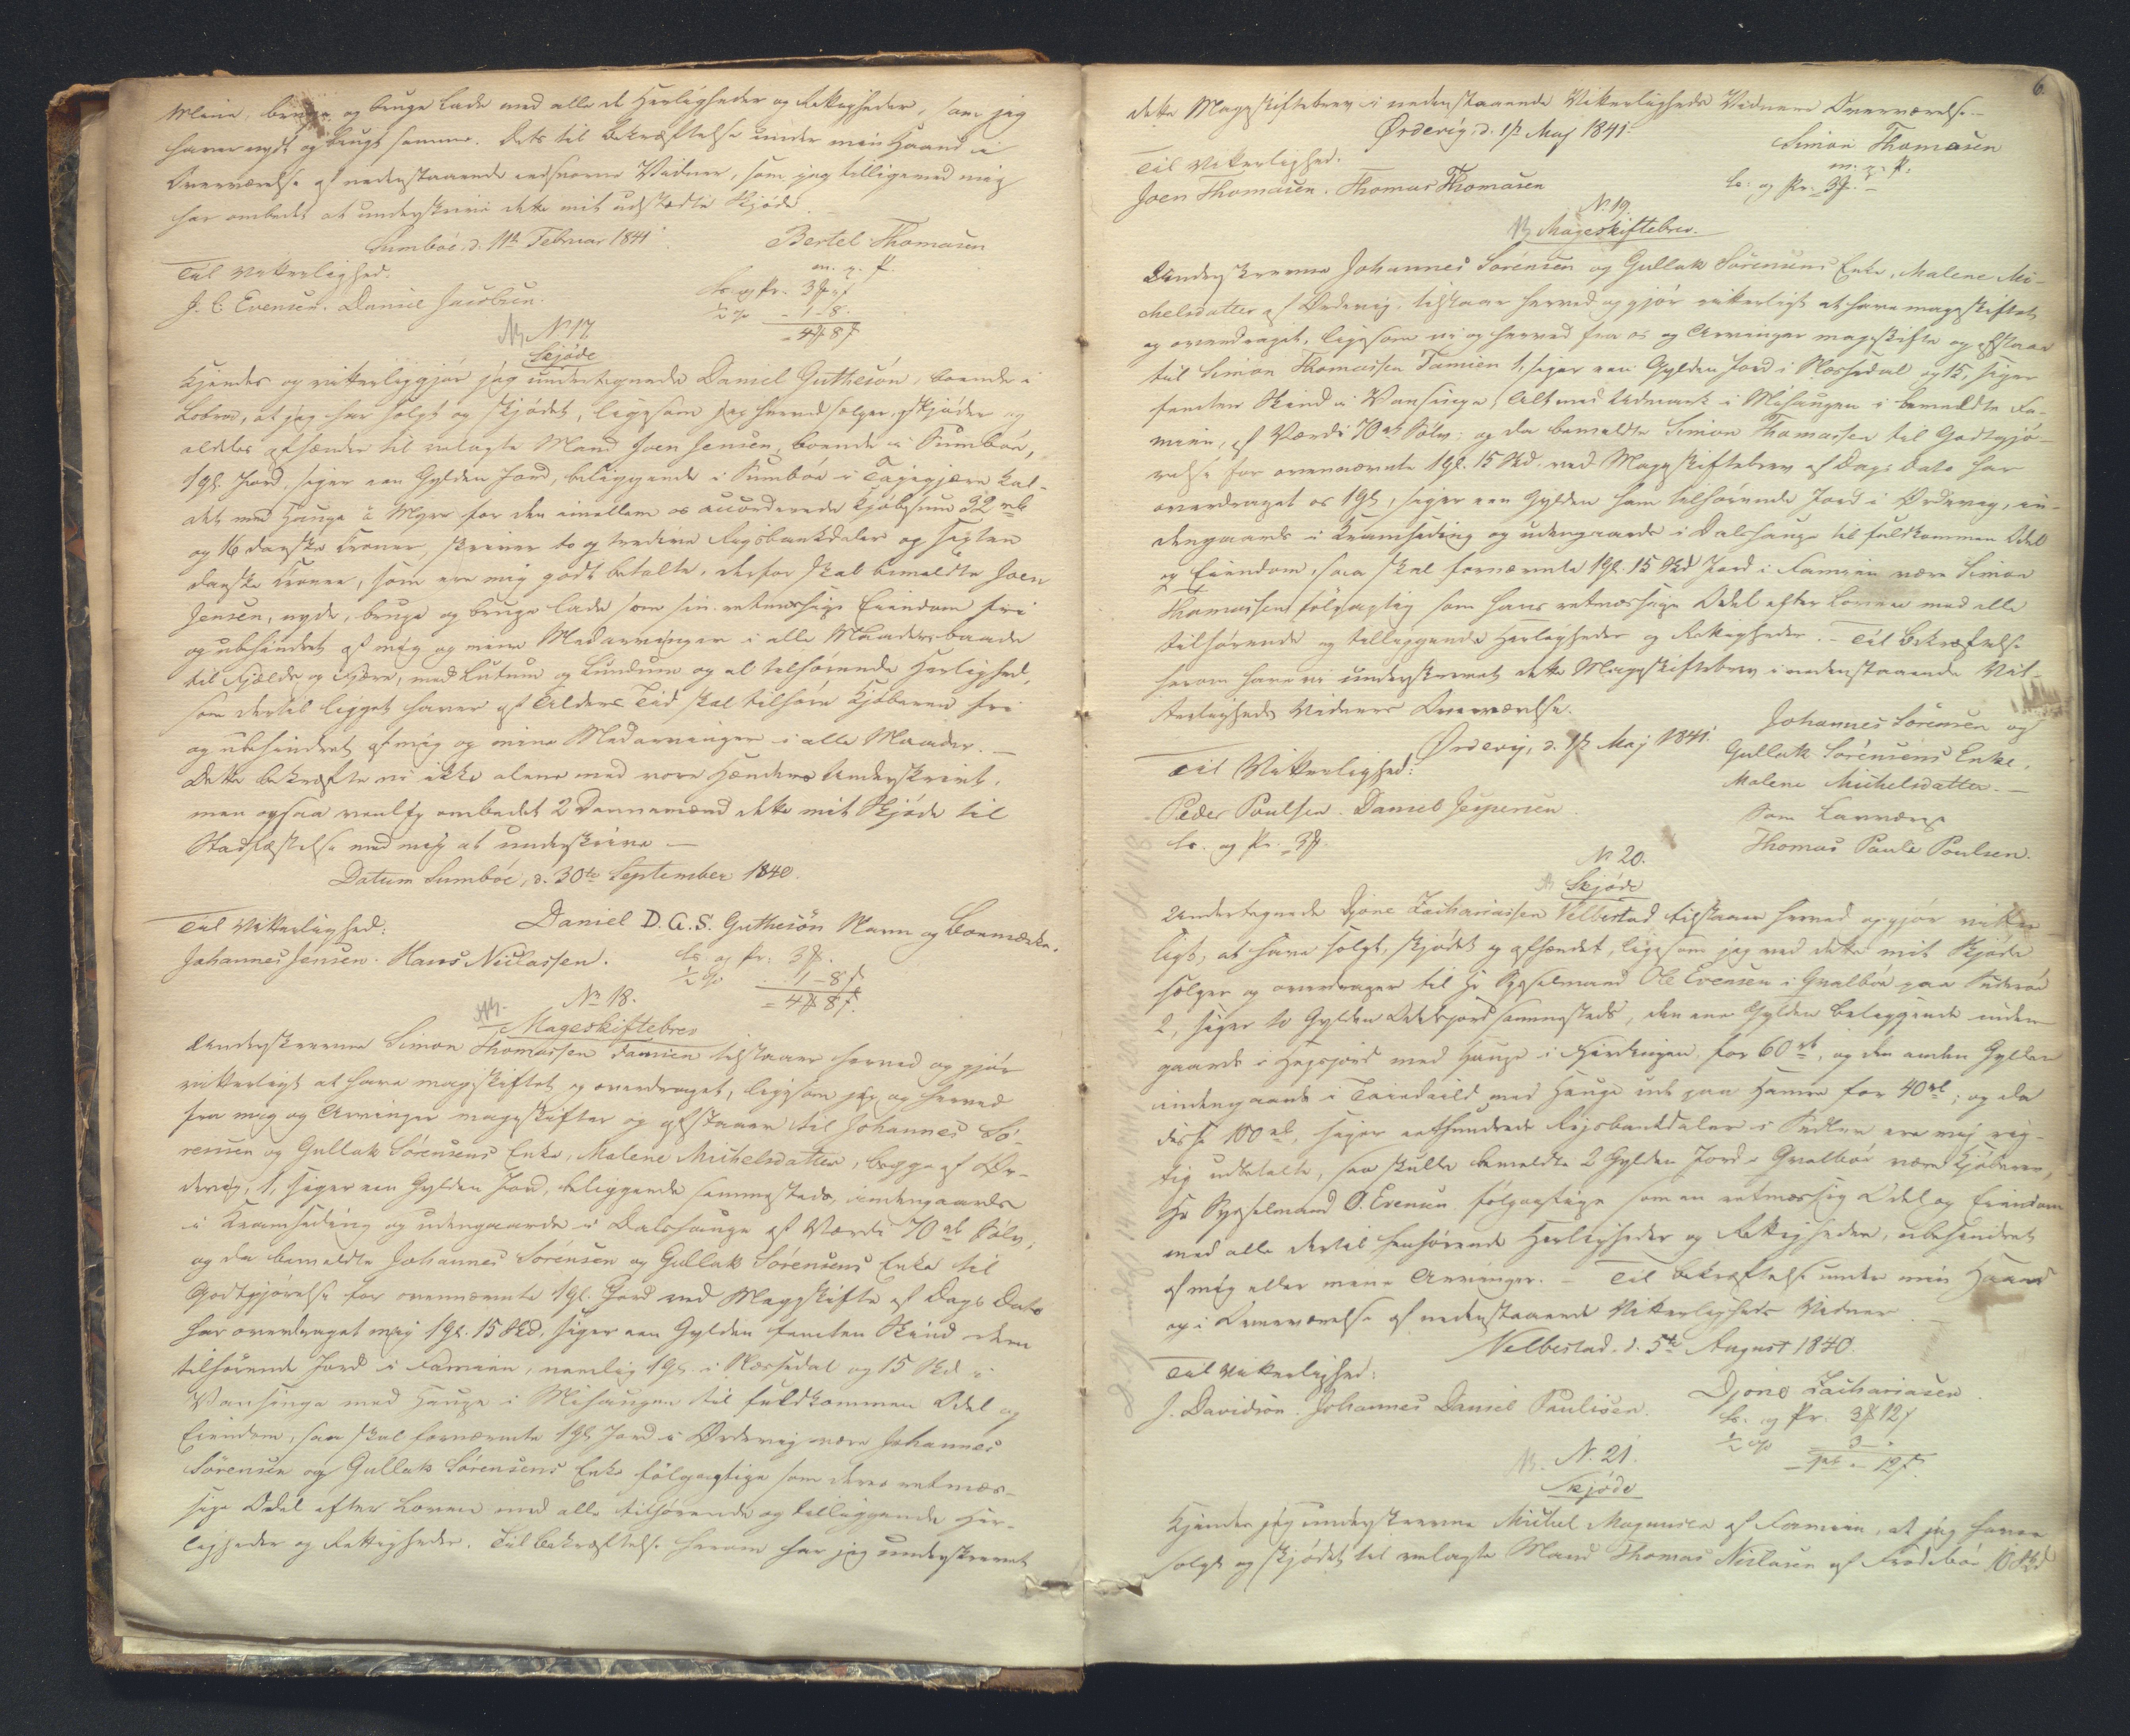 Mænd, bruge og bruge lade med alle de Herligheder og Rettigheder, som jeg
haver nydt og brugt samme. Dets til Bekræftelse under min Haand i
Overværelse af nedenstaaende eedsvorne Vidner, som jeg tilligemed mig
har ombedet at underskrive dette mit udstædte Skjøde
Sumböe, d. 11te Februar 1841.
Bertel Thomasen
m. p. P.
Til Vitterlighed:
J. C. Evensen. Daniel Jacobsen.
Ls. og Pr. 3 ₰ "
½ % - 1 - 8.
= 4 ₰ 8 ß
No 17
Skjøde
Kjendes og vitterliggjør jeg undertegnede Daniel Guttesön, boende i
Lobra, at jeg har solgt og skjødet, ligesom jeg herved sælger, skjøder og
aldeles afhænder til velagte Mand Joen Jensen, boende i Sumböe,
1 Gl. Jord, siger een Gylden Jord, beliggende i Sumböe i Tajigjæra kal-
det med Hauge i Myre for den imellem os accorderede Kjøbesum 32 rb
og 16 danske Kroner, skriver to og tredive Rigsbankdaler og sexten
danske Kroner, som ere mig godt betalte, derfor skal bemeldte Joen
Jensen, nyde, bruge og bruge lade som sin retmæssige Eiendom fri
og ubehindret af mig og mine Medarvinger i alle Maader baade
til Fjelds og Fjære, med Lutum og Lundum og al tilhørende Herlighed,
som dertil ligget haver af Alders Tid skal tilhøre Kjøberen fri
og ubehindret af mig og mine Medarvinger i alle Maader. —
Dette bekræfte vi ikke alene med vore Hænders Underskrivt,
men ogsaa venligt ombedet 2 Dannemænd dette mit Skjøde til
Stadfæstelse med mig at underskrive —
Datum Sumböe, d. 30te September 1840.
Daniel D. G. S. Guttesön Navn og Boemærke.
Til Vitterlighed:
Johannes Jensen. Hans Niclassen.
Ls. og Pr. 3 ₰.
½ % 1 - 8 ß
= 4 ₰ 8 ß.
No 18.
Mageskiftebrev
Underskrevne Simon Thomassen Famien tilstaaer herved og gjør
vitterligt at have mageskiftet og overdraget, ligesom jeg og herved
fra mig og Arvinger mageskifter og afstaaer til Johannes Sö-
rensen og Gullak Sörensens Enke, Malene Michelsdatter, begge af Ør-
devig, 1, siger een Gylden Jord, beliggende sammesteds, indengaards
i Kramheding og udengaards i Dalshauge af Værdi 70 rb Sølv,
og da bemeldte Johannes Sörensen og Gullak Sörensens Enke til
Godtgjørelse for ovennævnte 1 Gl. Jord ved Mageskifte af Dags Dato
har overdraget mig 1 Gl. 15 Skd. siger een Gylden femten Skind dem
tilhørende Jord i Famien, nemlig 1 Gl. i Næssedal og 15 Skd i
Vansinga med Hauge i Mihaugen til fuldkommen Odel og
Eiendom, saa skal fornævnte 1 Gl. Jord i Ørdevig være Johannes
Sörensen og Gullak Sörensens Enke følgagtige som deres retmæs-
sige Odel efter Loven med alle tilhørende og tilliggende Her-
ligheder og Rettigheder. Til Bekræftelse herom har jeg underskrevet
6.
dette Mageskiftebrev i nedenstaaende Vitterligheds Vidners Overværelse. —
Ørdevig, d. 1/2 Maj 1841.
Simon Thomasen
m. p. P.
Til Vitterlighed.
Joen Thomasen. Thomas Thomasen
Ls. og Pr. 3 ₰. —
No 19.
Mageskiftebrev.
Underskrevne Johannes Sörensen og Gullak Sörensens Enke, Malene Mi-
chelsdatter af Ørdevig, tilstaaer herved og gjør vitterligt at have mageskiftet
og overdraget, ligesom vi og herved fra os og Arvinger mageskifte og afstaae
til Simon Thomassen Famien 1, siger een Gylden Jord i Næssedal og 15, siger
femten Skind i Vansinga, Alt med Udmark i Mihaugen i bemeldte Fa-
mien, af Værdi 70 rb Sølv; og da bemeldte Simon Thomassen til Godtgjö-
relse for ovennævnte 1 Gl. 15 Skd. ved Mageskiftebrev af Dags Dato har
overdraget os 1 Gl., siger een Gylden ham tilhørende Jord i Ørdevig, in-
dengaards i Kramheding og udengaards i Dalshauge til fuldkommen Odel
og Eiendom, saa skal fornævnte 1 Gl. 15 Skd Jord i Famien være Simon
Thomassen følgagtig som hans retmæssige Odel efter Loven med alle
tilhørende og tilliggende Herligheder og Rettigheder. — Til Bekræftelse
herom have vi underskrevet dette Mageskiftebrev i nedenstaaende Vit-
terligheds Vidners Overværelse.
Ørdevig, d. 1/2 Maj 1841.
Johannes Sörensen og
Gullak Sörensens Enke,
Malene Michelsdatter. —
Som Lauværge
Thomas Paule Poulsen.
Til Vitterlighed:
Peder Poulsen. Daniel Jespersen.
Ls. og Pr. 3 ₰.
No 20.
Skjøde
Undertegnede Djone Zachariassen Velbestad tilstaaer herved og gjör vitter-
ligt, at have solgt, skjødet og afhændet, ligesom jeg ved dette mit Skjøde
sælger og overdrager til Hr Sysselmand Ole Evensen i Qvalböe paa Suderöe
2, siger to Gylden Odelsjord sammesteds, den ene Gylden beliggende inden-
gaards i Hegsjord med Hauge i Hardeigen, for 60 rb, og den anden Gylden
indengaards i med Hauge ude paa Hamre for 40 rb; og da
disse 100 rb, siger eethundrede Rigsbankdaler i Sedler ere mig rig-
tig udbetalte, saa skulle bemeldte 2 Gylden Jord i Qvalböe være Kjøberen,
Hr Sysselmand O. Evensen følgagtige som en retmæssig Odel og Eiendom
med alle dertil henhørende Herligheder og Rettigheder, ubehindret
af mig eller mine Arvinger. — Til Bekræftelse under min Haand
og i Overværelse af nedenstaaende Vitterligheds Vidner.
Velbestad. d. 5te August 1840.
Djone Zachariasen.
Til Vitterlighed:
J. Davidsen. Johannes Daniel Paulisen.
Ls. og Pr. 3 ₰ 12 ß
½ % 3 -
12 ß.
No. 21.
Skjøde
Kjendes jeg underskrevne Michel Magnusen af Famien, at jeg haver
solgt og skjødet til velagte Mand Thomas Niclasen af Frodeböe 10 Skd